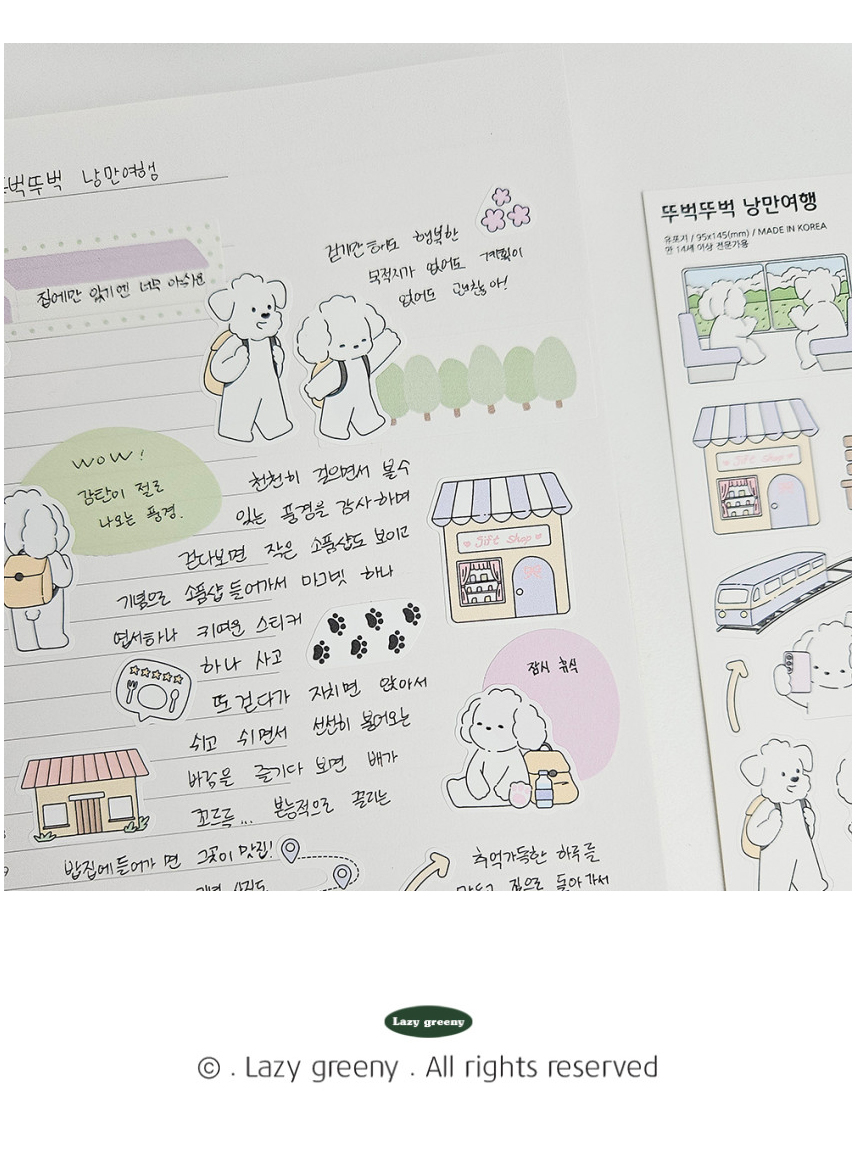 뚜벅뚜벅 낭만여행
집에만 있기엔 너무 아쉬운
걷기만 해도 행복한
목적지가 없어도 계획이
없어도 괜찮아!
WOW!
감탄이 절로
나오는 풍경.
천천히 걸으면서 볼수
있는 풍경을 감사하며
걷다보면 작은 소품샵도 보이고
기념으로 소품샵 들어가서 마그넷 하나
엽서하나 귀여운 스티커
하나 사고
또 걷다가 지치면 앉아서
쉬고 쉬면서 선선히 불어오는
바람을 즐기다 보면 배가
꼬르륵... 본능적으로 끌리는
밥집에 들어가 면 그곳이 맛집!
Gift Shop
잠시 휴식
추억가득한 하루를
집으로 돌아가서
뚜벅뚜벅 낭만여행
유포지 / 95x145(mm) / MADE IN KOREA
만 14세 이상 전문가용
Gift Shop
Lazy greeny
© . Lazy greeny . All rights reserved